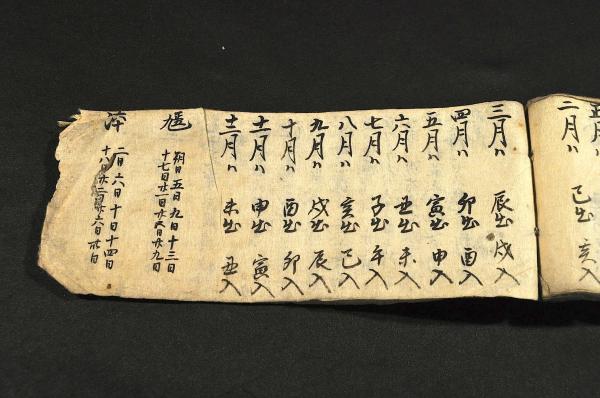 二月ハ 巳出 亥入
三月ハ 辰出 戌入
四月ハ 卯出 酉入
五月ハ 寅出 申入
六月ハ 丑出 未入
七月ハ 子出 午入
八月ハ 亥出 巳入
九月ハ 戌出 辰入
十月ハ 酉出 卯入
十一月ハ 申出 寅入
十二月ハ 未出 丑入
朔日五日九日十三日
十七日廿一日廿五日廿九日
二日六日十日十四日
十八日廿二日廿六日卅日